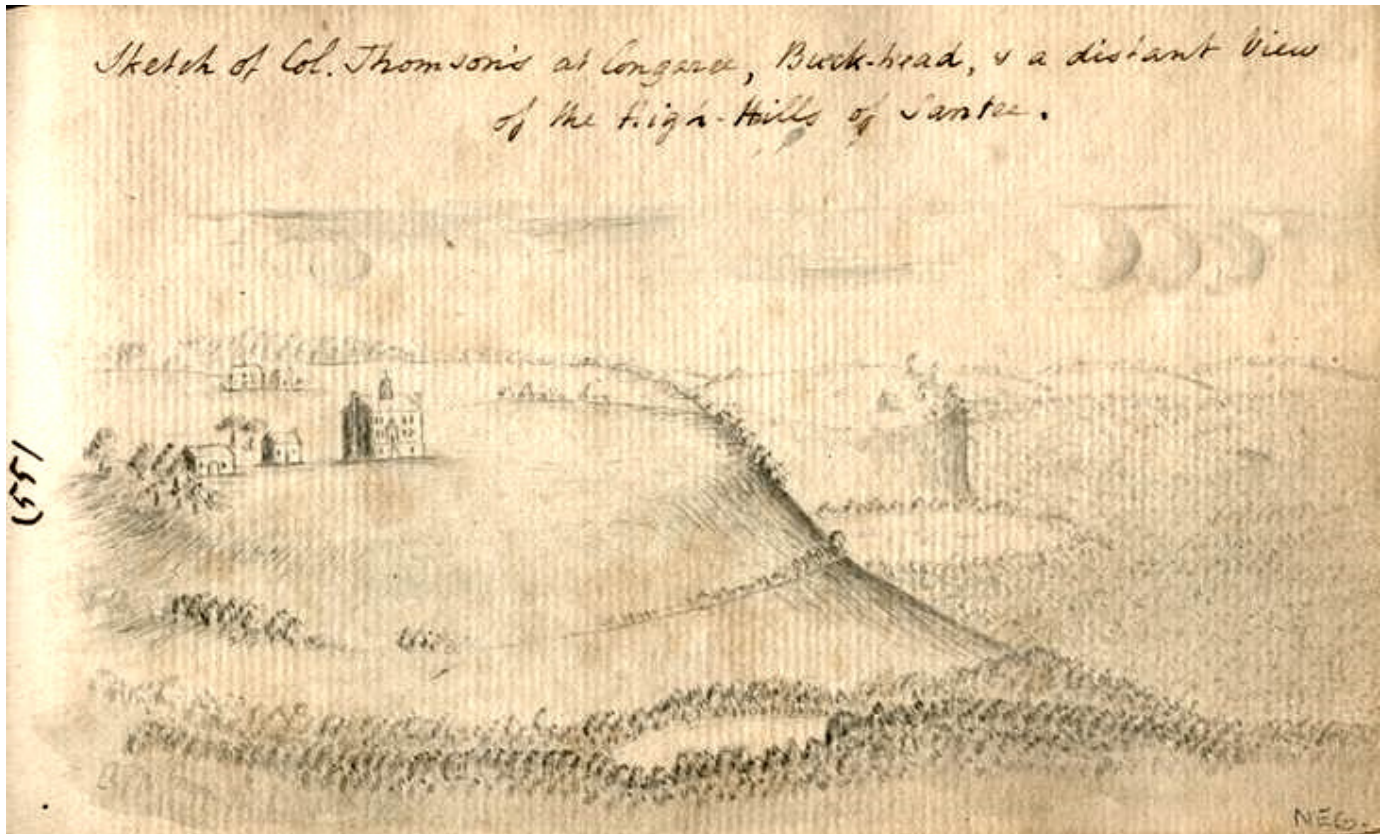 Sketch of Col. Thomson's at Congaree, Buck-head, & a distant View
of the High-Hills of Santee.
(55)
NEG.